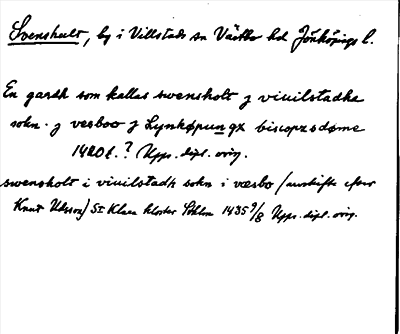 Svenshult, by i Villstads sn Västbo hd Jönköpings l.
En gardh som kallas swensholt j viuilstadha
sokn. j vesboo j Lynkøpungx biscopzsdøme
1420 t.? Upps. dipl. orig.
swensholt i viuilstadh sokn i væsbo (avskrift efter
Knut Ulsson) St Klara kloster Sthlm 1435 9/8 Upps. dipl. orig.